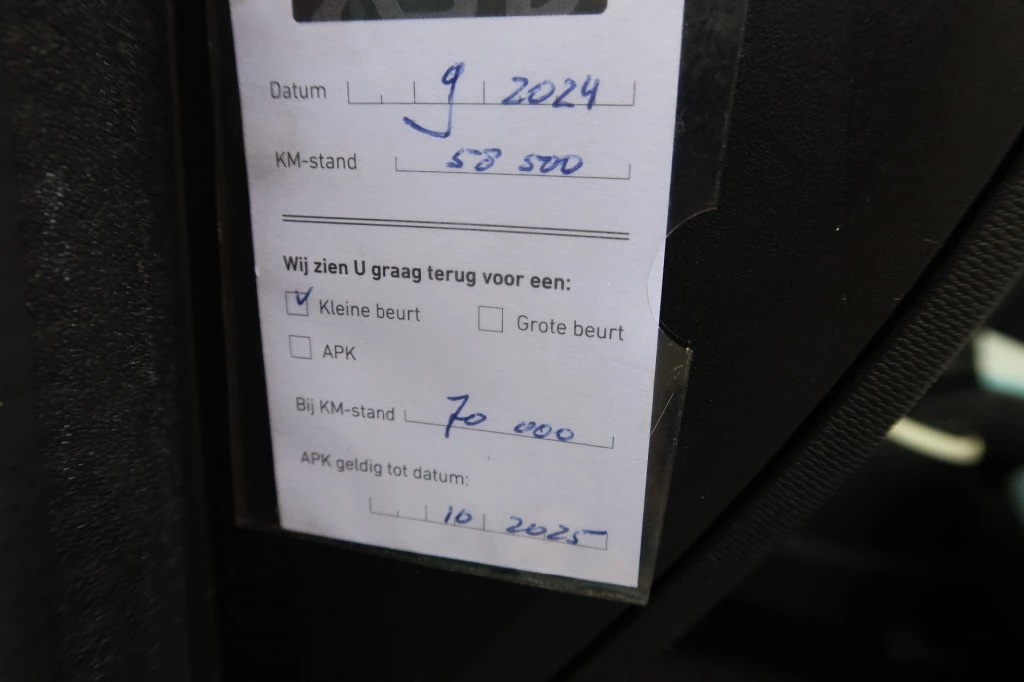 Datum 9 2024
KM-stand 58 500
Wij zien U graag terug voor een:
Kleine beurt Grote beurt
APK
Bij KM-stand 70 000
APK geldig tot datum:
10 2025